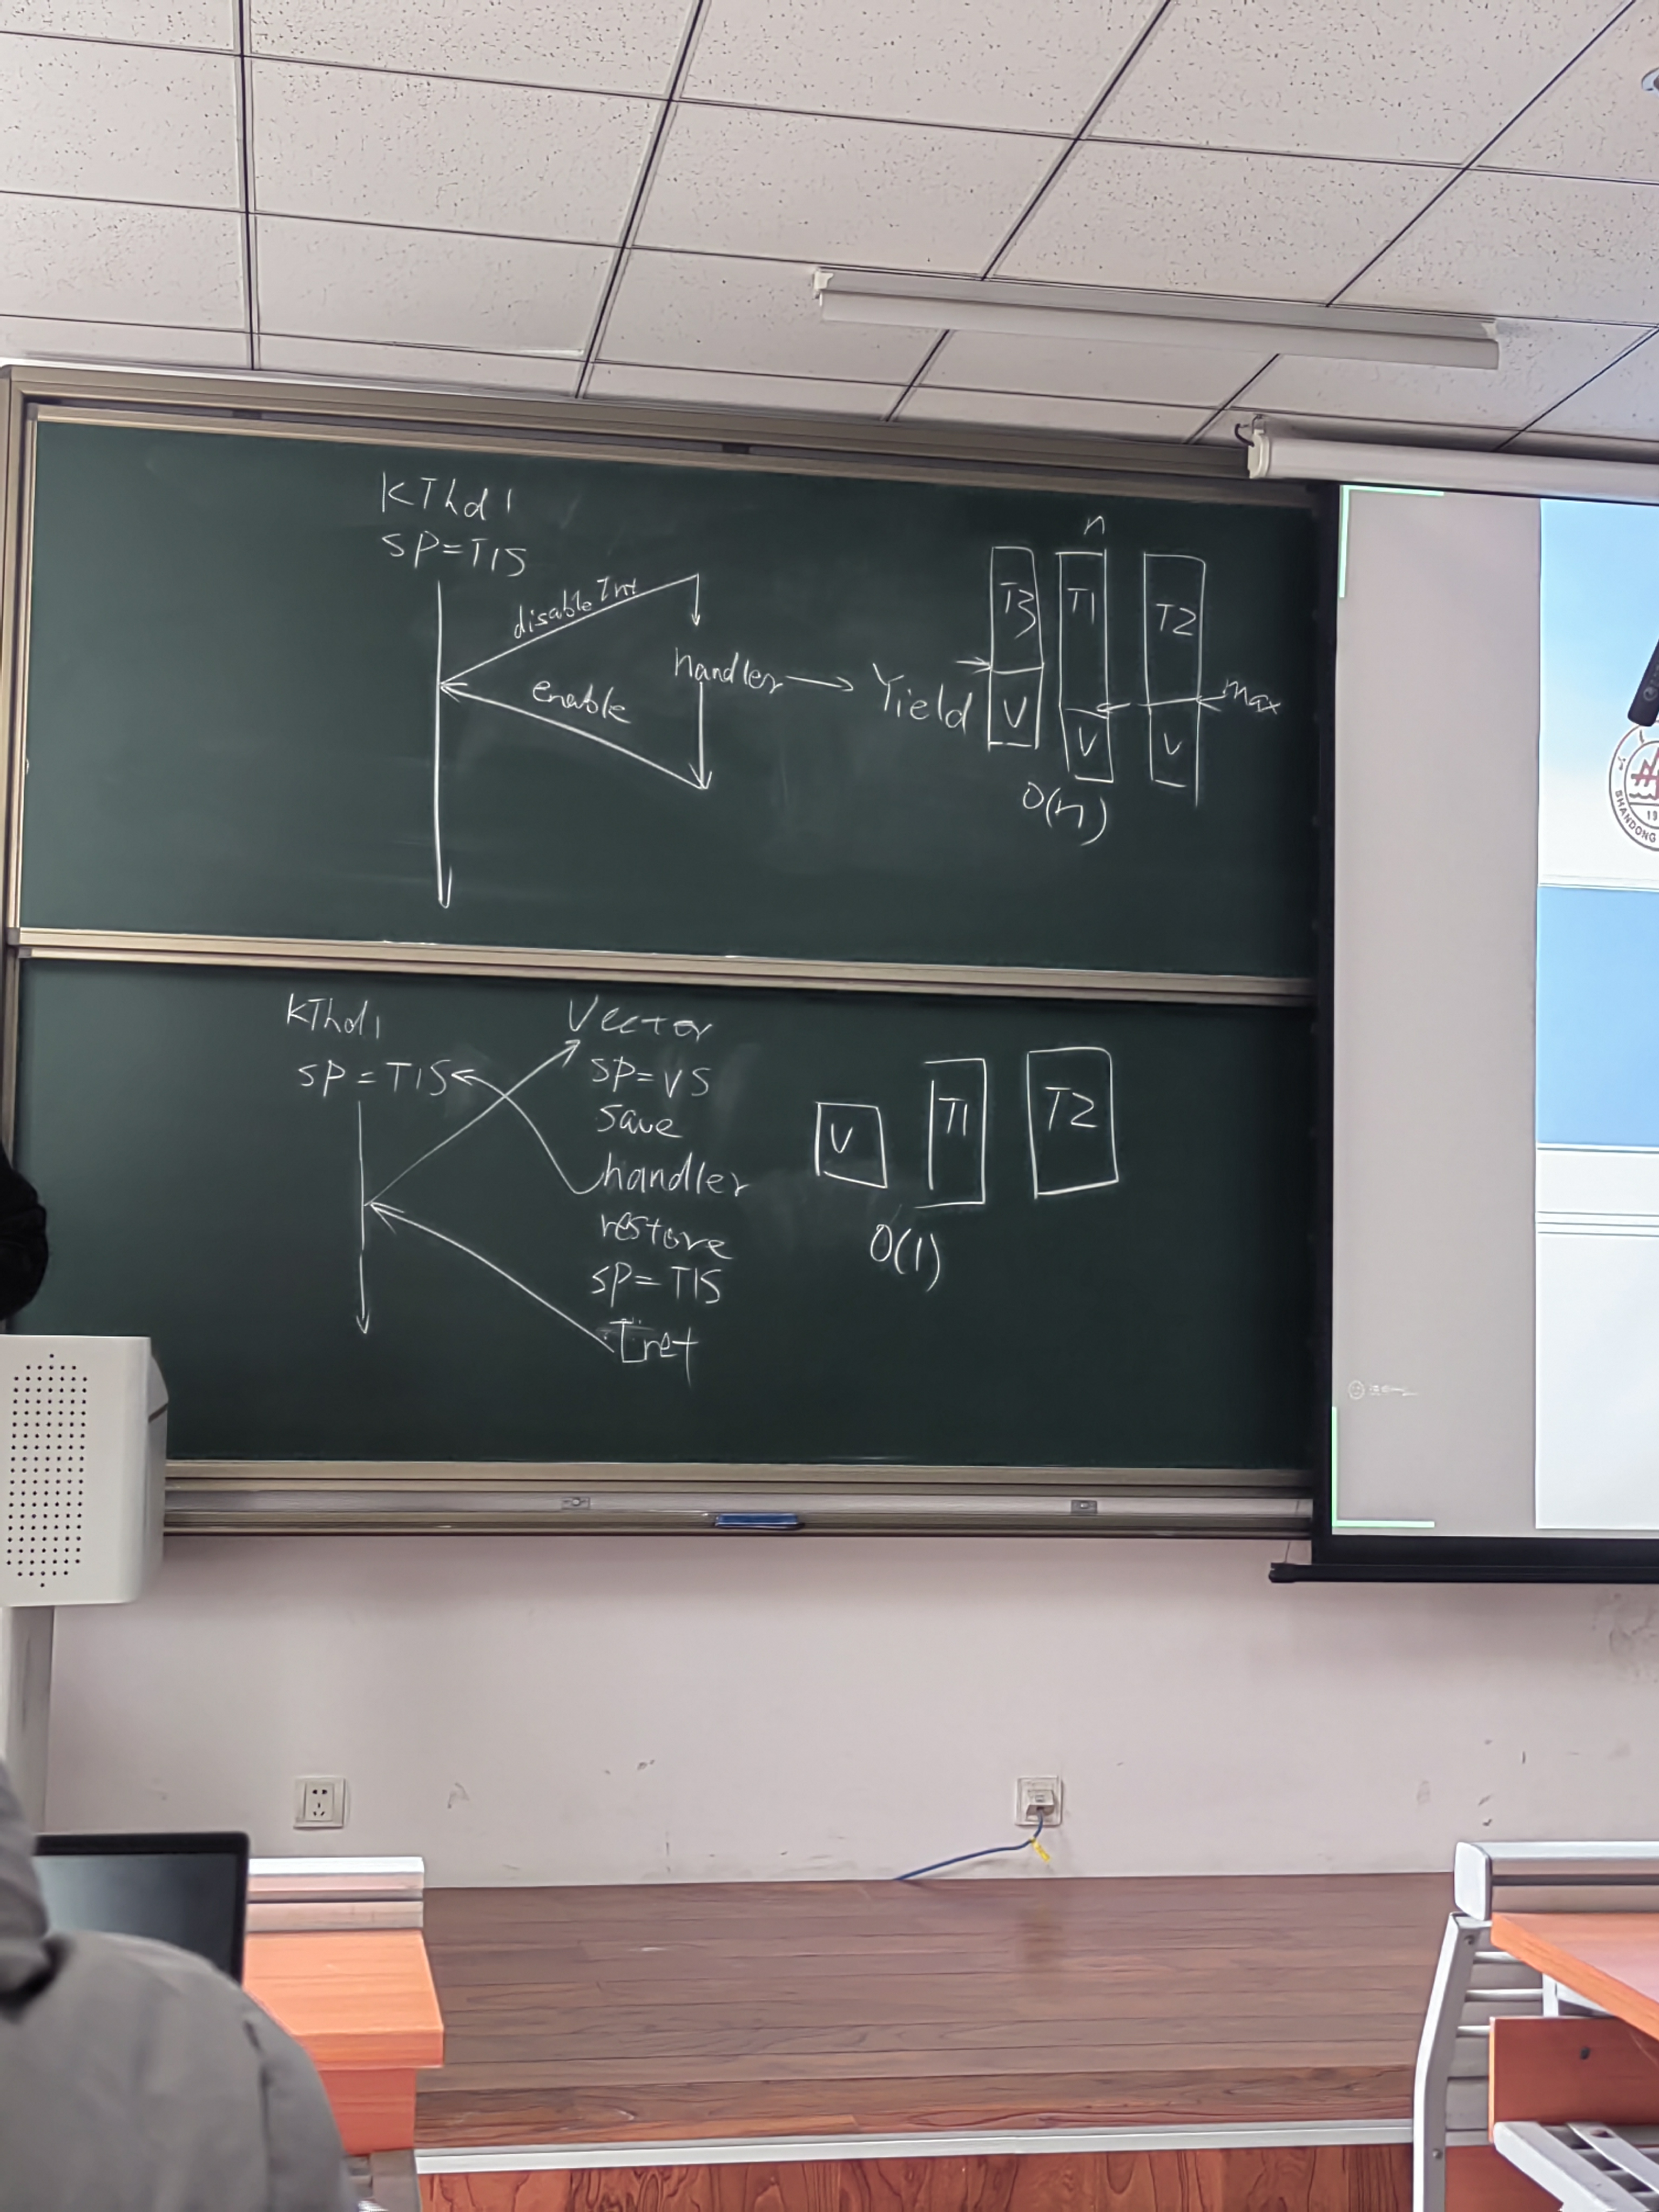 KThd1
SP=T1S
disable Int
handler → Yield
enable
n
T3 T1 T2
V V V
max
O(n)
KThd1
SP=T1S
Vector
SP=VS
save
handler
restore
SP=T1S
Iret
V T1 T2
O(1)
SHANDONG
19